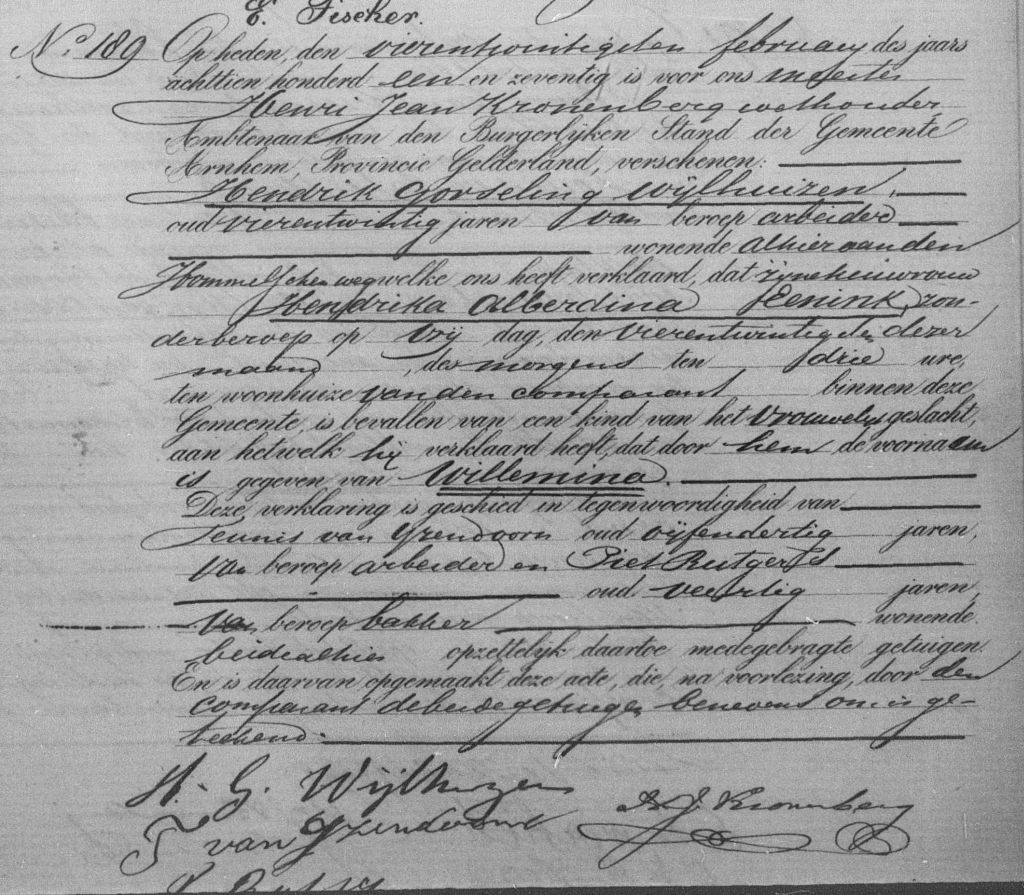 E. Fischer.
No. 189 Op heden, den vierentwintigsten february des jaars
achttien honderd een en zeventig is voor ons meester
Henri Jean Kronenberg wethouder
Ambtenaar van den Burgerlijken Stand der Gemeente
Arnhem, Provincie Gelderland, verschenen:
Hendrik Gosseling Wijlhuizen,
oud vierentwintig jaren van beroep arbeider
wonende alhier aan den
Hommelschen weg welke ons heeft verklaard, dat zijne huisvrouw
Hendrika Alberdina Eenink, zon-
der beroep op Vrij dag, den vierentwintigsten dezer
maand, des morgens ten drie ure,
ten woonhuize van den comparant binnen deze
Gemeente, is bevallen van een kind van het vrouwelijk geslacht,
aan hetwelk hij verklaard heeft, dat door hem de voornaam
is gegeven van Willemina.
Deze verklaring is geschied in tegenwoordigheid van
Teunis van Yzendoorn oud vijfendertig jaren,
van beroep arbeider en Piet Rutgers
oud veertig jaren,
van beroep bakker wonende
beide alhier opzettelijk daartoe medegebragte getuigen.
En is daarvan opgemaakt deze acte, die, na voorlezing, door den
comparant de beide getuigen benevens ons is ge-
teekend.
H. G. Wijlhuizen
T van Yzendoorn
H. J. Kronenberg